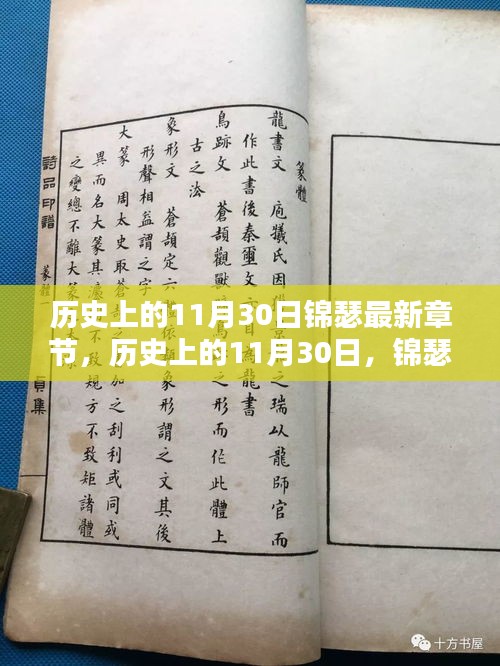 篆體
龍書文 庖犧氏因之瑞以龍師官而
作此書後秦璽文為龍書
鳥跡文 蒼頡觀獸之形而作此體上
古之法
象形文 蒼頡定六象形謂之文其後
形聲相益謂之字
大篆 周太史取蒼頡加之刮利或同或
異而名大篆其不致規方不致矩諸體
之變總不離大篆
詩品印譜 篆體 貞集
历史上的11月30日锦瑟最新章
节，历史上的11月30日，锦瑟
十方书屋